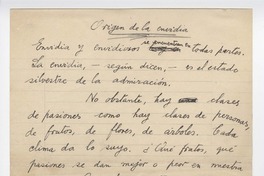 Origen de la envidia
Envidia y envidiosos se encuentran en todas partes.
La envidia, – según dicen, – es el estado
silvestre de la admiración.
No obstante, hay clases
de pasiones como hay clases de personas,
de frutos, de flores, de árboles. Cada
clima da lo suyo. ¿Qué frutos, qué
pasiones se dan mejor o peor en nuestra